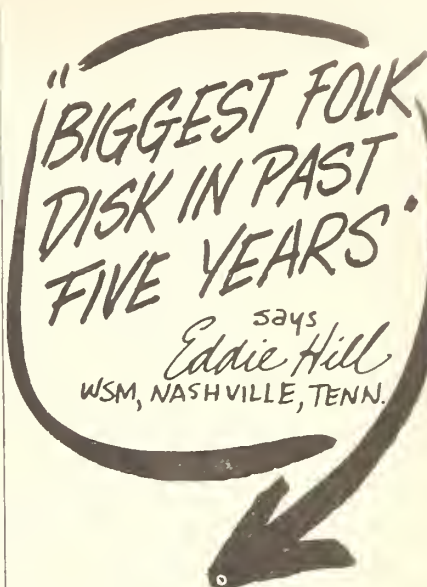 "BIGGEST FOLK
DISK IN PAST
FIVE YEARS"
says
Eddie Hill
WSM, NASHVILLE, TENN.